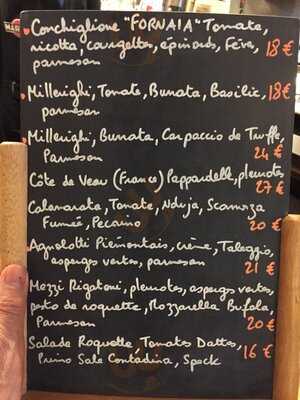 Conchiglione "FORNAIA" Tomate,
ricotta, courgettes, épinards, Fèves,
parmesan 18 €
Millerighi, Tomate, Burrata, Basilic, 18 €
parmesan
Millerighi, Burrata, Carpaccio de Truffe,
Parmesan 24 €
Côte de Veau (France) Pappardelle, pleurotes
27 €
Calamarata, Tomate, Nduja, Scamorza
Fumée, Pecorino 20 €
Agnolotti Piemontais, crème, Taleggio,
asperges vertes, parmesan 21 €
Mezzi Rigatoni, pleurotes, asperges vertes,
pesto de roquette, Mozzarella Bufala,
Parmesan 20 €
Salade Roquette, Tomates Dattes,
Primo Sale Contadina, Speck 16 €